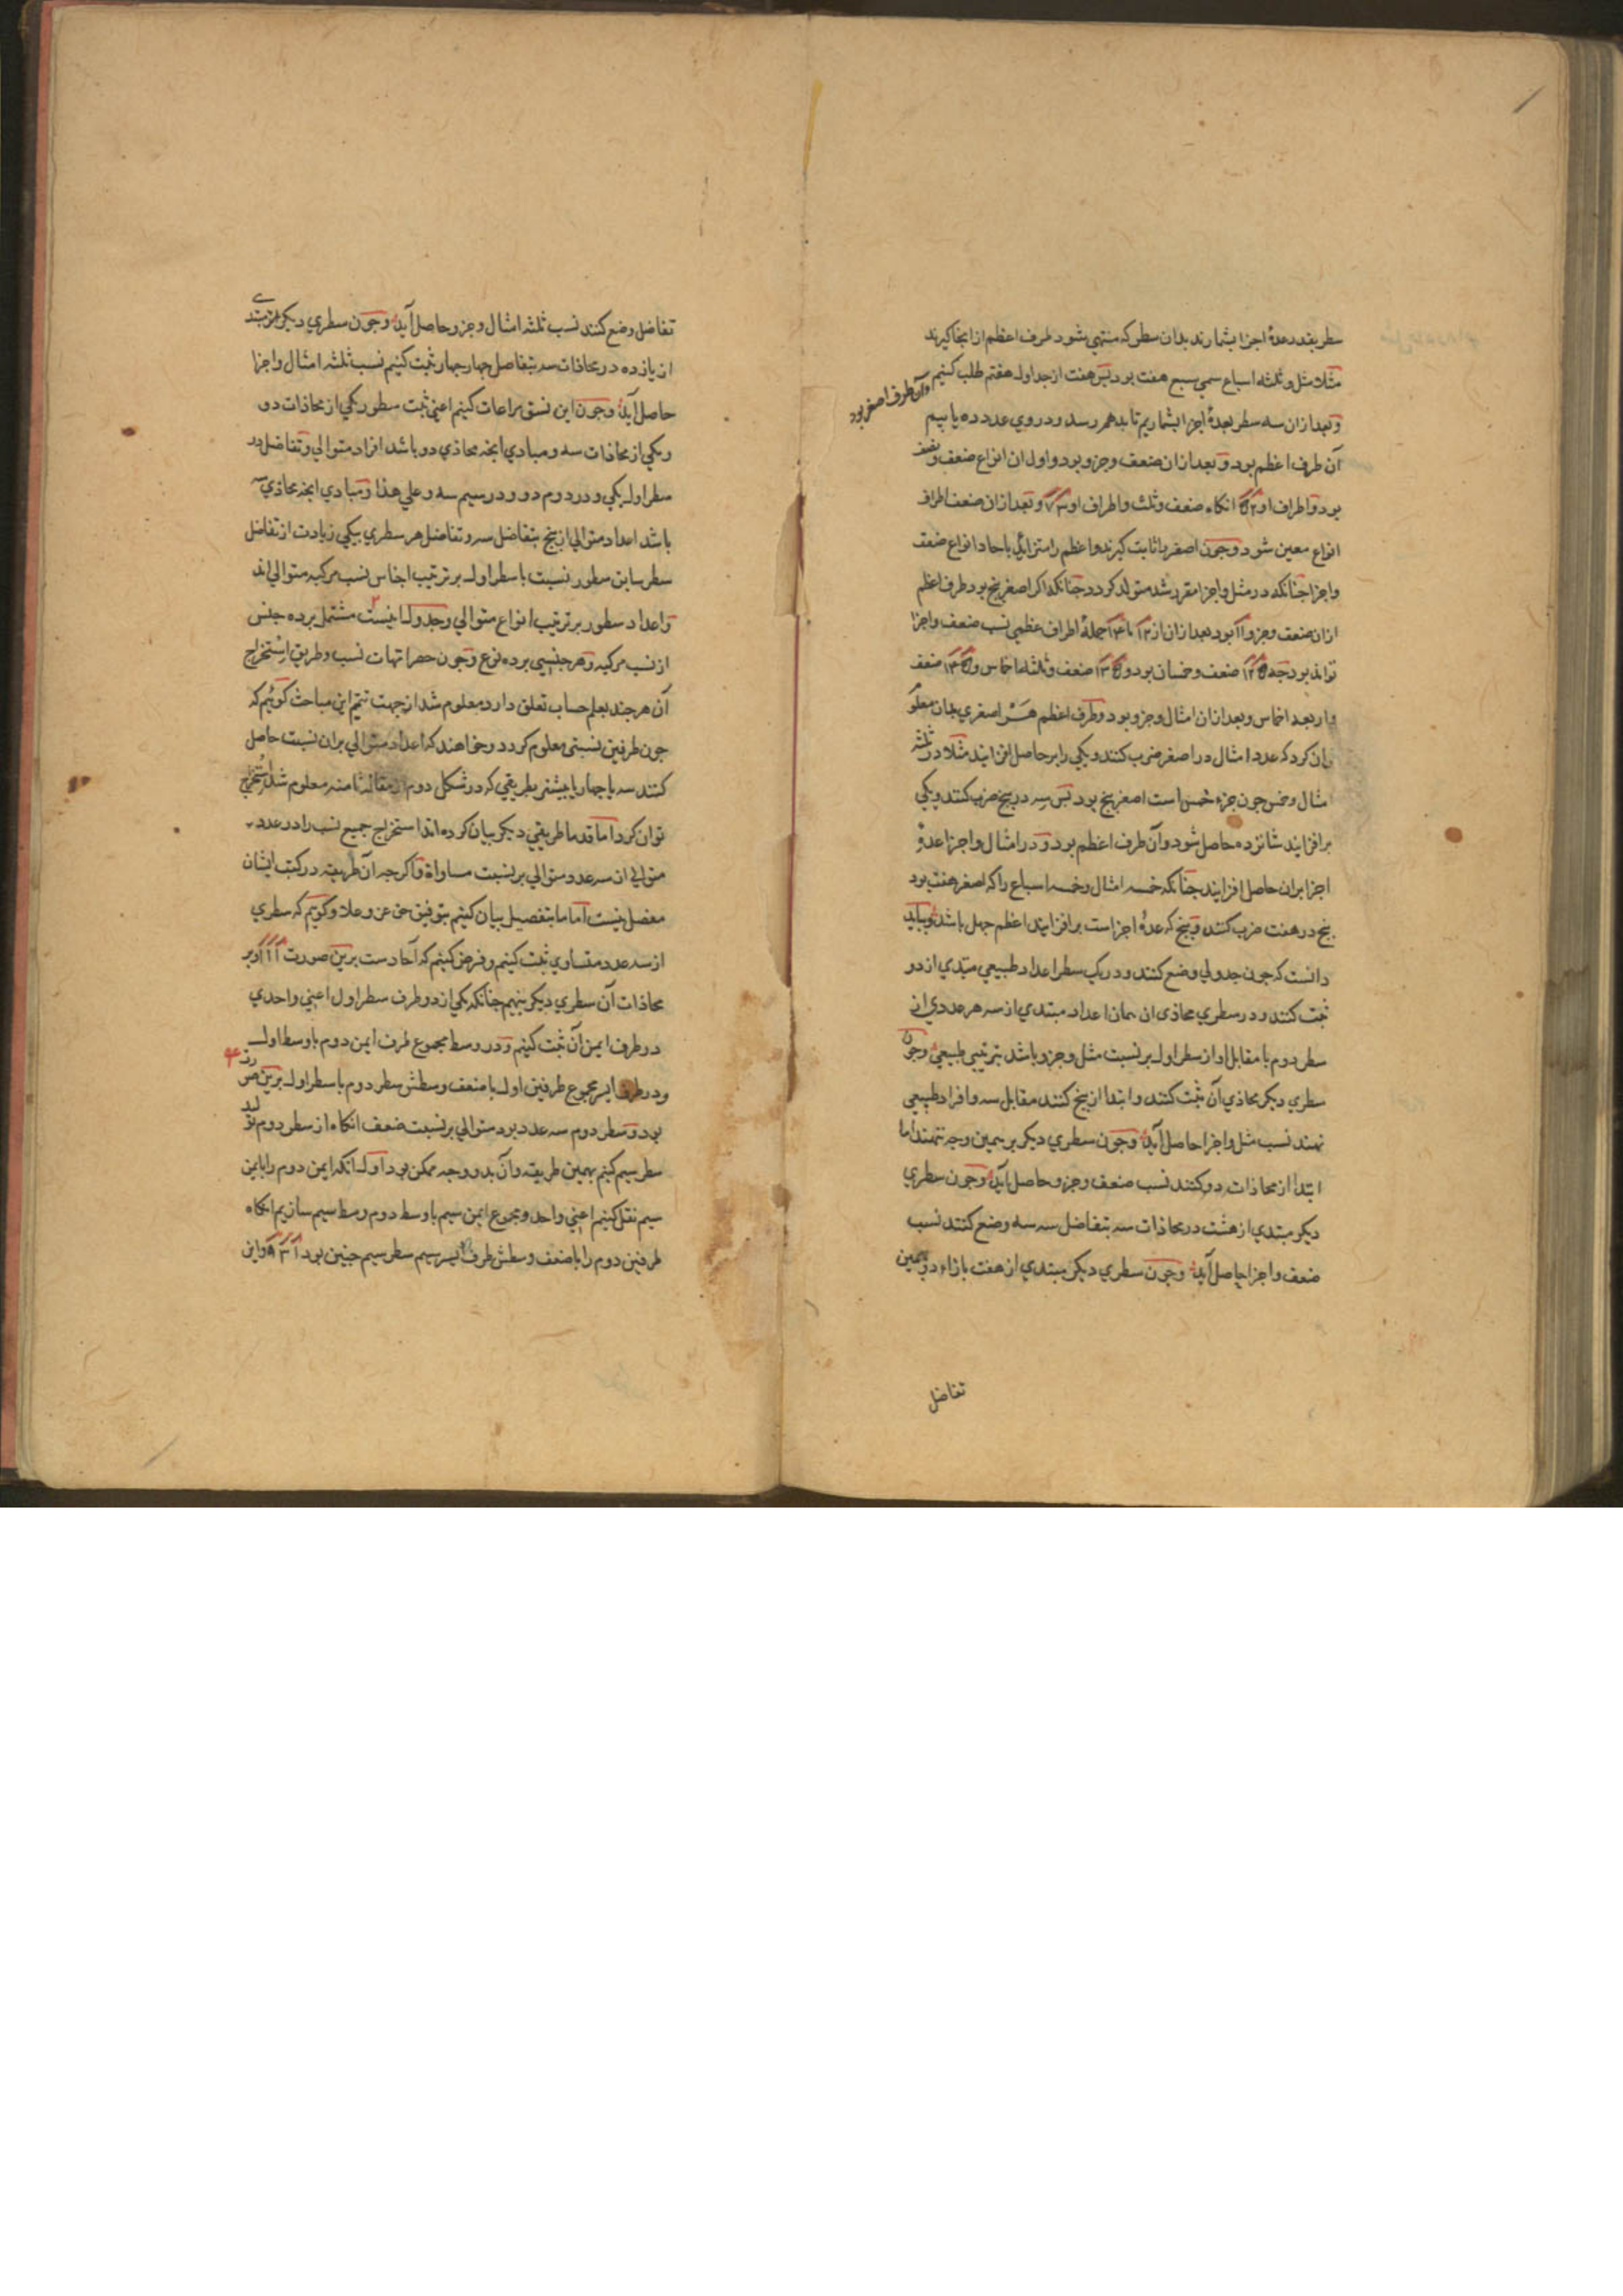 سطر بقدر عدهٔ اجزا بشمارند بدان سطر که منتهی شود طرف اعظم از انجا کیرند
مثلا مثل و ثلثه اسباع سمی سبع هفت بود بس هفت از جداول هفتم طلب کنیم وآن طرف اصغر بود
و بعد ازان سه سطر بعدهٔ اجزا بشماریم تا بدهم رسد و در وی عدد ده یابیم
آن طرف اعظم بود و بعد ازان ضعف و جزو بود و اول ان انواع ضعف و نصف
بود و اطراف او ۲ ۵ انکاه ضعف و ثلث و اطراف او ۳ ۷ و بعد ازان ضعف اطراف
انواع معین شود و جون اصغر را ثابت کیرند و اعظم را متزاید باحاد انواع ضعف
و اجزا جنانکه در مثل و اجزا مقرر شد متولد کردد جنانکه اکر اصغر پنج بود طرف اعظم
ازان ضعف و جزو ۱۱ بود بعد ازان از ۱۲ تا ۱۴ جملهٔ اطراف عظمی نسب ضعف و اجزا
تواند بود جه ۵ ۱۲ ضعف و خمسان بود و ۵ ۱۳ ضعف و ثلثه اخماس و ۵ ۱۴ ضعف
و اربعه اخماس و بعد ازان امثال و جزو بود و طرف اعظم هر اصغری بدان معلو
توان کرد که عدد امثال در اصغر ضرب کنند و یکی را بر حاصل افزایند مثلا در ثلثه
امثال و خمس جون جزء خمس است اصغر پنج بود بس سه در پنج ضرب کنند و یکی
برافزایند شانزده حاصل شود و آن طرف اعظم بود و در امثال و اجزا عدهٔ
اجزا بران حاصل افزایند جنانکه خمسه امثال و خمسه اسباع را که اصغر هفت بود
پنج در هفت ضرب کنند و پنج که عدهٔ اجزاست برافزایند اعظم جهل باشد و بباید
دانست که جون جدولی وضع کنند و در یک سطر اعداد طبیعی مبتدی از دو
ثبت کنند و در سطری محاذی ان همان اعداد مبتدی از سه هر عددی از
سطر دوم با مقابل او از سطر اول بر نسبت مثل و جزو باشد بترتیبی طبیعی و جون
سطری دیکر محاذی آن ثبت کنند و ابتدا از پنج کنند مقابل سه و افراد طبیعی
نهند نسب مثل و اجزا حاصل آید و جون سطری دیکر بر همین وجه نهند اما
ابتدا از محاذات دو کنند نسب ضعف و جزو حاصل آید و جون سطری
دیکر مبتدی از هشت در محاذات سه بتفاضل سه سه وضع کنند نسب
ضعف و اجزا حاصل آید و جون سطری دیکر مبتدی از هفت بازاء دو بهمین
تفاضل
تفاضل وضع کنند نسب ثلثه امثال و جزو حاصل آید و جون سطری دیکر مبتدی
از یازده در محاذات سه بتفاضل جهار جهار ثبت کنیم نسب ثلثه امثال و اجزا
حاصل آید و جون این نسق مراعات کنیم اعنی ثبت سطور یکی از محاذات دو
و یکی از محاذات سه و مبادی انجه محاذی دو باشد افراد متوالی و تفاضل در
سطر اول یکی و در دوم دو و در سیم سه و علی هذا و مبادی انجه محاذی سه
باشد اعداد متوالی از پنج بتفاضل سه و تفاضل هر سطری بیکی زیادت از تفاضل
سطر سابق سطور نسبت با سطر اول بر ترتیب اجناس نسب مرکبه متوالی اند
و اعداد سطور بر ترتیب انواع متوالی و جدول اینست مشتمل بر ده جنس
از نسب مرکبه و هر جنسی بر ده نوع و جون حصر امهات نسب و طریق استخراج
آن هر جند بعلم حساب تعلق دارد معلوم شد از جهت تتمیم این مباحث کوئیم که
جون طرفین نسبتی معلوم کردد و خواهند که اعداد متوالی بران نسبت حاصل
کنند سه یا جهار یا بیشتر بطریقی که در شکل دوم از مقاله ثامنه معلوم شد استخراج
توان کرد اما قدما طریقی دیکر بیان کرده اند استخراج جمیع نسب را در عدد
متوالی از سه عدد متوالی بر نسبت مساواة و اکر جه آن طریقه در کتب ایشان
مفصل نیست اما ما بتفصیل بیان کنیم بتوفیق حق عز و علا و کوییم که سطری
از سه عدد متساوی ثبت کنیم و فرض کنیم که آحادست برین صورت ۱ ۱ ۱ و بر
محاذات آن سطری دیکر بنهیم جنانکه یکی از دو طرف سطر اول اعنی واحدی
در طرف ایمن آن ثبت کنیم و در وسط مجموع طرف ایمن دوم با وسط اول
و در طرف ایسر مجموع طرفین اول با ضعف وسطش سطر دوم با سطر اول برین صورت
بود و سطر دوم سه عدد بود متوالی بر نسبت ضعف انکاه از سطر دوم تولید
سطر سیم کنیم بهمین طریقه و آن بدو وجه ممکن بود اول انکه ایمن دوم را بایمن
سیم نقل کنیم اعنی واحد و مجموع ایمن سیم با وسط دوم وسط سیم سازیم انکاه
طرفین دوم را با ضعف وسطش طرف ایسر سیم سطر سیم جنین بود ۱ ۳ ۹ و این